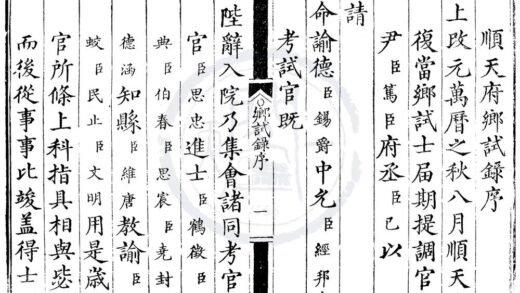 順天府鄉試錄序
上改元萬曆之秋八月順天
復當鄉試士屆期提調官
尹臣篤臣府丞臣已以
請
命諭德臣錫爵中允臣經邦
考試官既
鄉試錄序
一
陛辭入院乃集會諸同考官
官臣思忠進士臣鶴徵臣
典臣伯春臣思宸臣堯封
德涵知縣臣維唐教諭臣
蛟臣民止臣文明用是歲
官所條上科指具相與毖
而後從事事比竣蓋得士